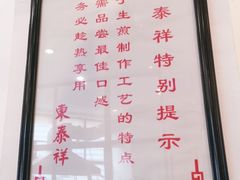 泰祥特别提示
于生煎制作工艺的特点
需品尝最佳口感
务必趁热享用
東泰祥